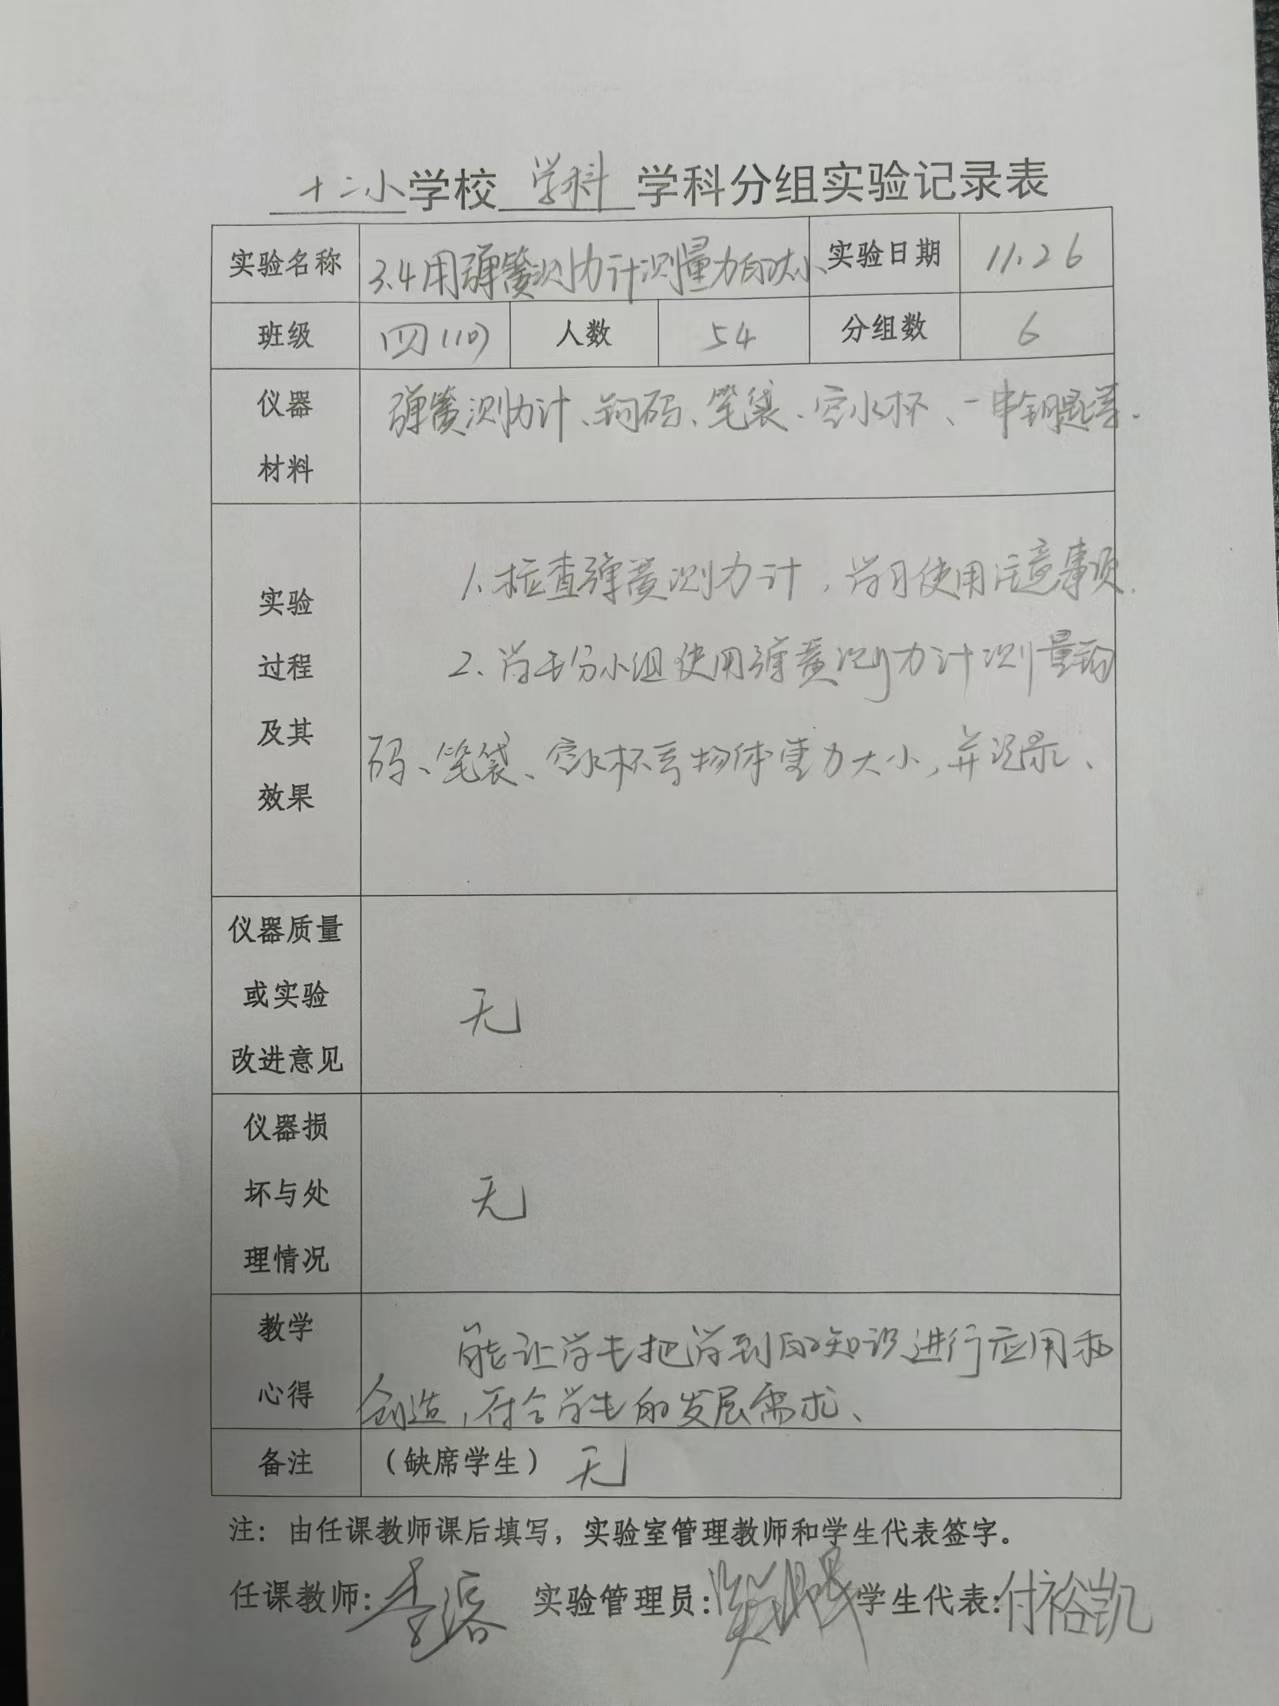 十二小学校 学科 学科分组实验记录表
实验名称 3.4用弹簧测力计测量力的大小 实验日期 11.26
班级 四(10) 人数 54 分组数 6
仪器
材料
弹簧测力计、钩码、笔袋、空水杯、一串钥匙等.
实验
过程
及其
效果
1. 检查弹簧测力计,学习使用注意事项.
2、学生分小组使用弹簧测力计测量钩
码、笔袋、空水杯等物体重力大小,并记录、
仪器质量
或实验
改进意见
无
仪器损
坏与处
理情况
无
教学
心得
能让学生把学到的知识进行应用和
创造,符合学生的发展需求、
备注 (缺席学生) 无
注:由任课教师课后填写,实验室管理教师和学生代表签字。
任课教师: 李溶 实验管理员: 学生代表:付裕凯